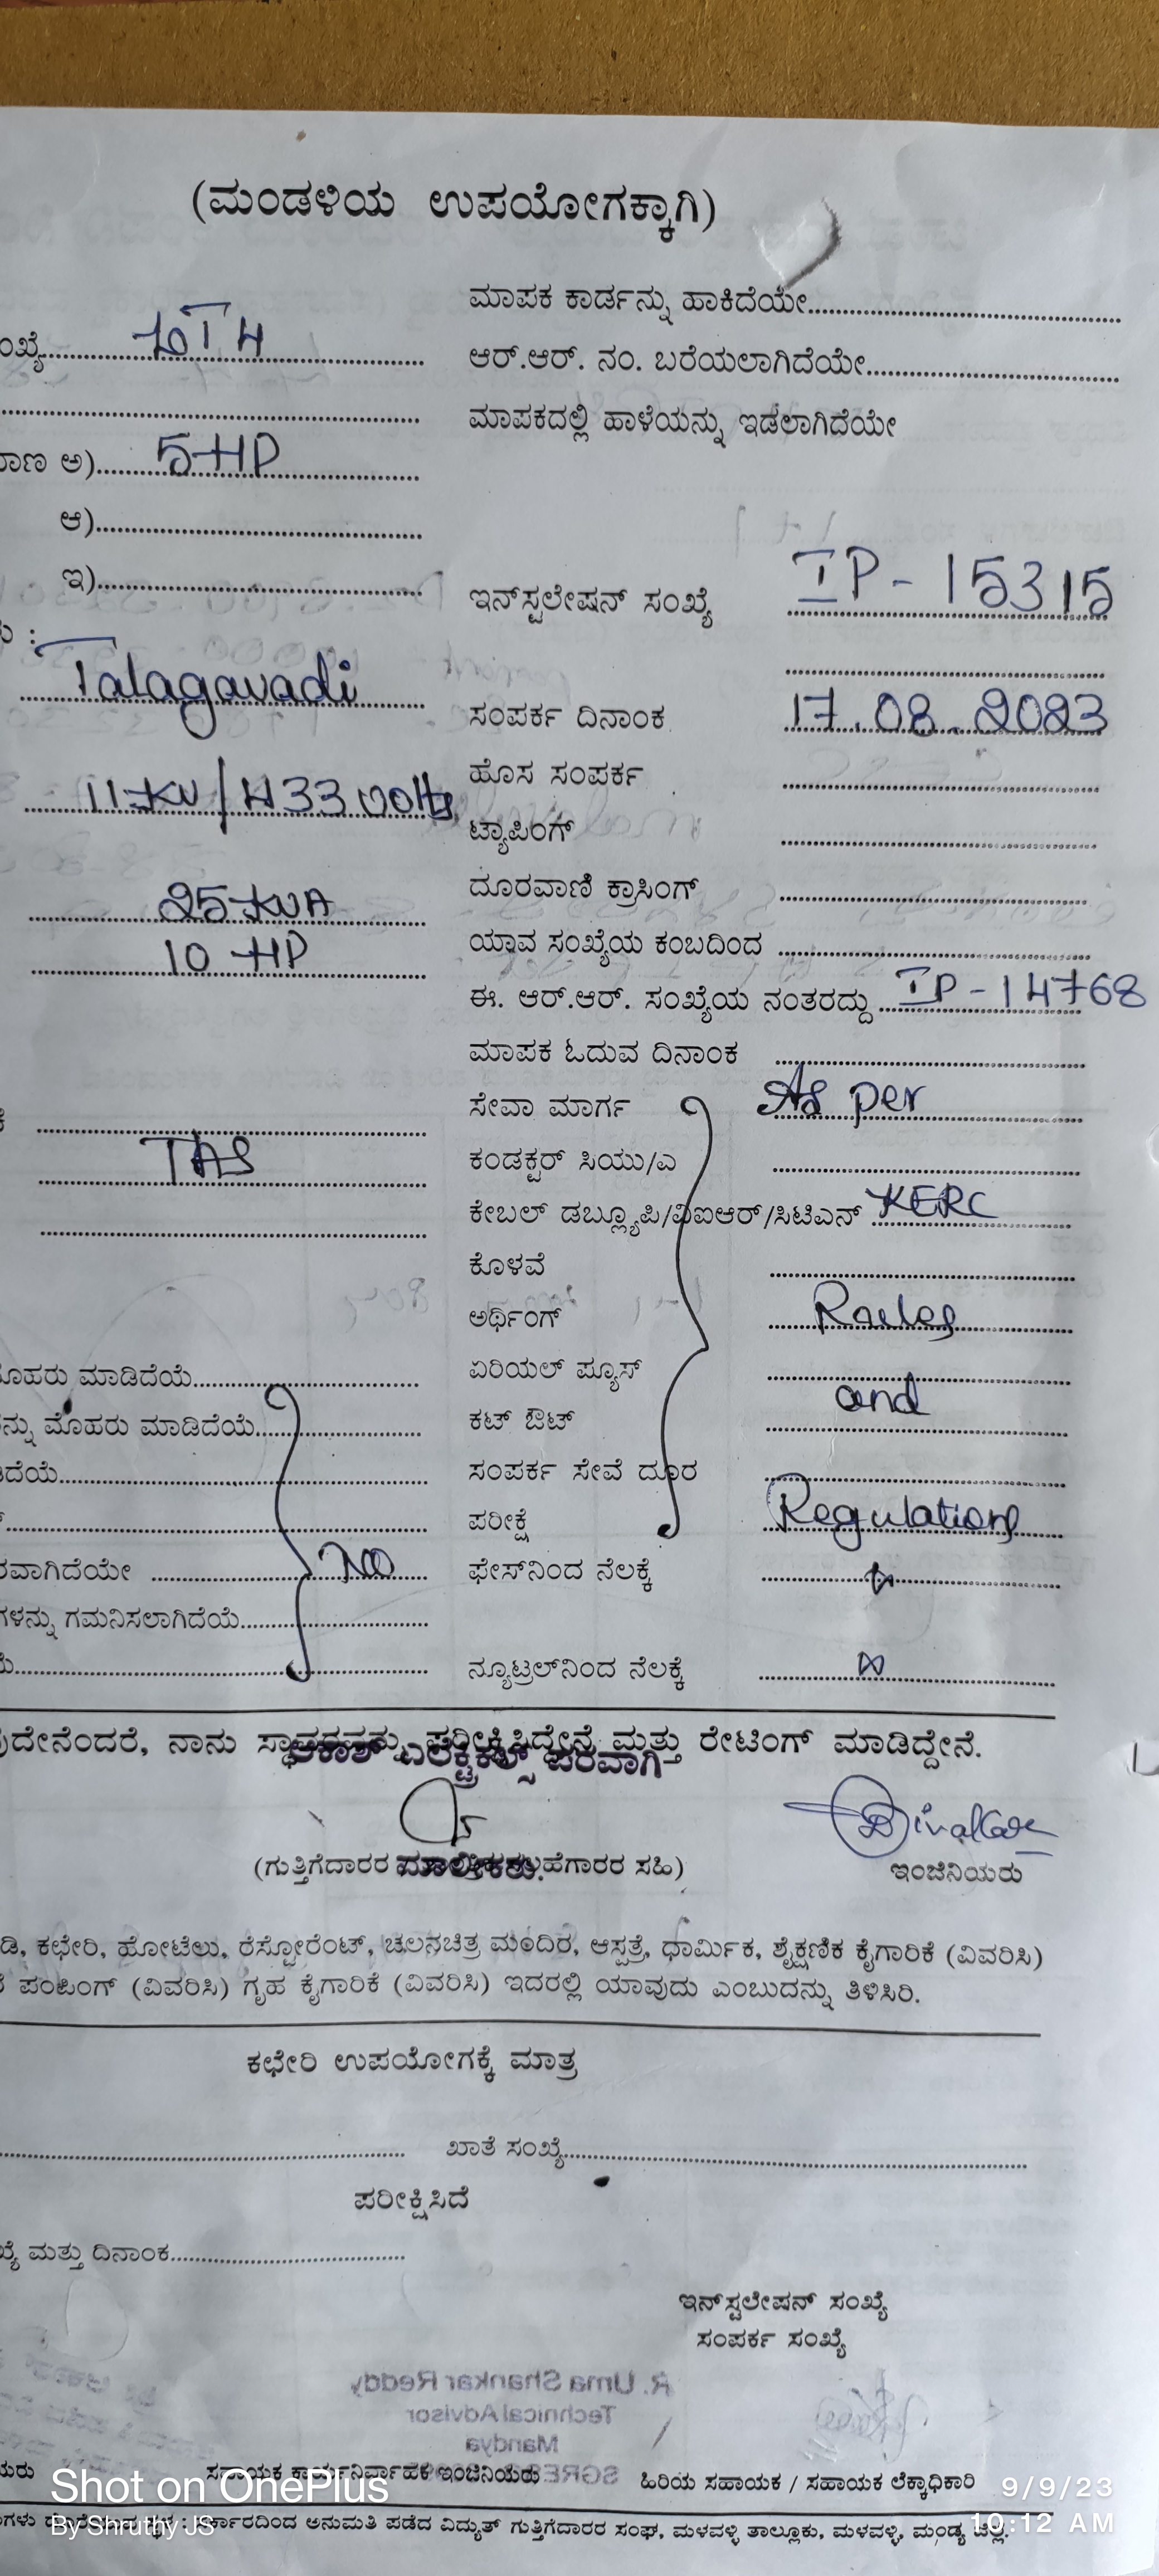 (ಮಂಡಳಿಯ ಉಪಯೋಗಕ್ಕಾಗಿ)
ಮಾಪಕ ಕಾರ್ಡನ್ನು ಹಾಕಿದೆಯೇ
ಂಖ್ಯೆ
ಆರ್.ಆರ್. ನಂ. ಬರೆಯಲಾಗಿದೆಯೇ
ಮಾಪಕದಲ್ಲಿ ಹಾಳೆಯನ್ನು ಇಡಲಾಗಿದೆಯೇ
ಮಾಣ ಅ) 5 HP
ಆ)
ಇ)
ಇನ್‌ಸ್ಟಲೇಷನ್ ಸಂಖ್ಯೆ IP - 15315
Talagavadi
ಸಂಪರ್ಕ ದಿನಾಂಕ 17.08.2023
ಹೊಸ ಸಂಪರ್ಕ
11 KV / 433 volts
ಟ್ಯಾಪಿಂಗ್
ದೂರವಾಣಿ ಕ್ರಾಸಿಂಗ್
25 KVA
ಯಾವ ಸಂಖ್ಯೆಯ ಕಂಬದಿಂದ
10 HP
ಈ. ಆರ್.ಆರ್. ಸಂಖ್ಯೆಯ ನಂತರದ್ದು IP - 14768
ಮಾಪಕ ಓದುವ ದಿನಾಂಕ
ಸೇವಾ ಮಾರ್ಗ As per
ಕಂಡಕ್ಟರ್ ಸಿಯು/ಎ
ಕೇಬಲ್ ಡಬ್ಲ್ಯೂಪಿ/ವಿಐಆರ್/ಸಿಟಿಎನ್ KERC
ಕೊಳವೆ
ಅರ್ಥಿಂಗ್ Rules
ಏರಿಯಲ್ ಪ್ಯೂಸ್
ೊಹರು ಮಾಡಿದೆಯೆ
and
ಕಟ್ ಔಟ್
ನ್ನು ಮೊಹರು ಮಾಡಿದೆಯೆ
ಸಂಪರ್ಕ ಸೇವೆ ದೂರ
ದೆಯೆ
ಪರೀಕ್ಷೆ Regulations
ರವಾಗಿದೆಯೇ No
ಫೇಸ್‌ನಿಂದ ನೆಲಕ್ಕೆ
ಗಳನ್ನು ಗಮನಿಸಲಾಗಿದೆಯೆ
ನ್ಯೂಟ್ರಲ್‌ನಿಂದ ನೆಲಕ್ಕೆ
ುದೇನೆಂದರೆ, ನಾನು ಪರೀಕ್ಷಿಸಿದ್ದೇನೆ ಮತ್ತು ರೇಟಿಂಗ್ ಮಾಡಿದ್ದೇನೆ.
ಆಕಾಶ್ ಎಲೆಕ್ಟ್ರಿಕಲ್ಸ್ ಪರವಾಗಿ
(ಗುತ್ತಿಗೆದಾರರ ಸಹಿ)
ಮಾಲೀಕರು.
ಇಂಜಿನಿಯರು
ಡಿ, ಕಛೇರಿ, ಹೋಟೆಲು, ರೆಸ್ಟೋರೆಂಟ್, ಚಲನಚಿತ್ರ ಮಂದಿರ, ಆಸ್ಪತ್ರೆ, ಧಾರ್ಮಿಕ, ಶೈಕ್ಷಣಿಕ ಕೈಗಾರಿಕೆ (ವಿವರಿಸಿ)
ಪಂಟಿಂಗ್ (ವಿವರಿಸಿ) ಗೃಹ ಕೈಗಾರಿಕೆ (ವಿವರಿಸಿ) ಇದರಲ್ಲಿ ಯಾವುದು ಎಂಬುದನ್ನು ತಿಳಿಸಿರಿ.
ಕಛೇರಿ ಉಪಯೋಗಕ್ಕೆ ಮಾತ್ರ
ಖಾತೆ ಸಂಖ್ಯೆ
ಪರೀಕ್ಷಿಸಿದೆ
ಖ್ಯೆ ಮತ್ತು ದಿನಾಂಕ
ಇನ್‌ಸ್ಟಲೇಷನ್ ಸಂಖ್ಯೆ
ಸಂಪರ್ಕ ಸಂಖ್ಯೆ
R. Uma Shankar Reddy
Technical Advisor
Mandya
ಯರು ಸಹಾಯಕ ಕಾರ್ಯನಿರ್ವಾಹಕ ಇಂಜಿನಿಯರು ಹಿರಿಯ ಸಹಾಯಕ / ಸಹಾಯಕ ಲೆಕ್ಕಾಧಿಕಾರಿ
Shot on OnePlus 9/9/23
By Shruthy JS 10:12 AM
ಅನುಮತಿ ಪಡೆದ ವಿದ್ಯುತ್ ಗುತ್ತಿಗೆದಾರರ ಸಂಘ, ಮಳವಳ್ಳಿ ತಾಲ್ಲೂಕು, ಮಳವಳ್ಳಿ, ಮಂಡ್ಯ ಜಿಲ್ಲೆ.